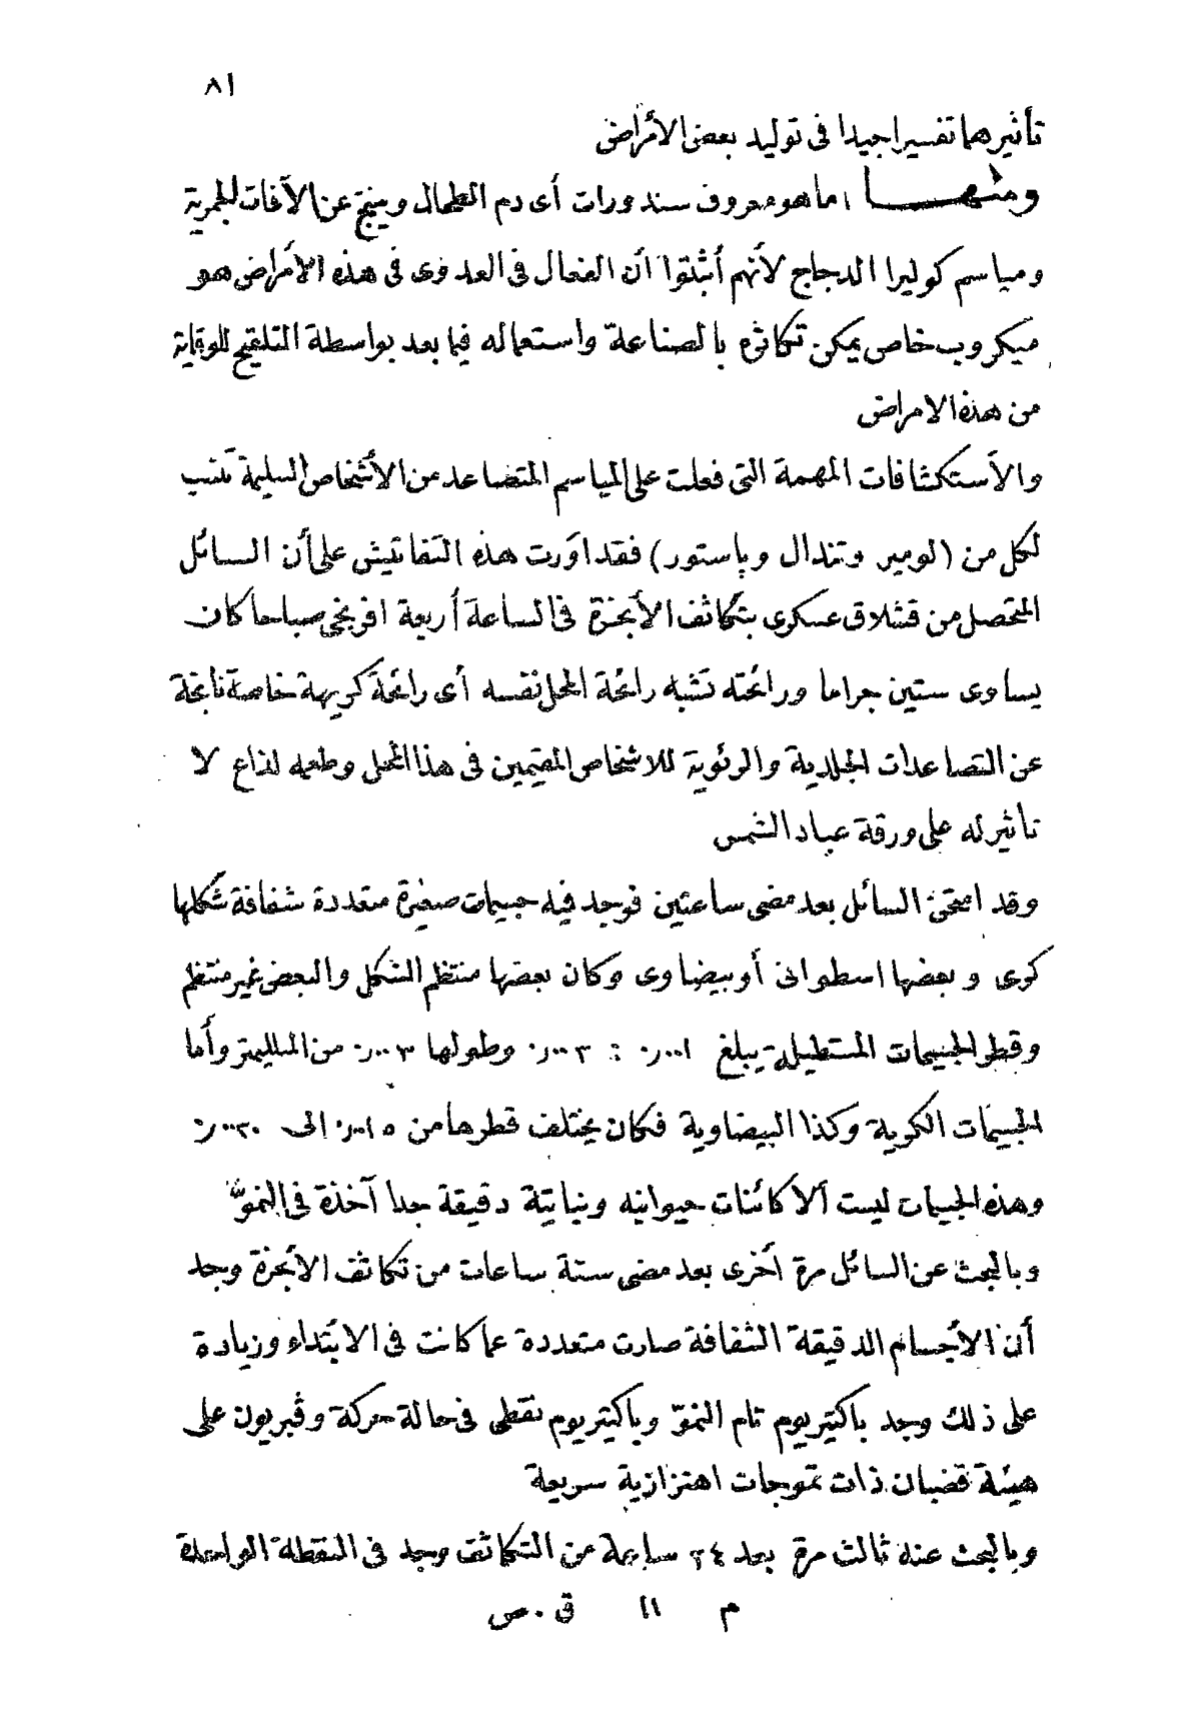 ٨١
تأثيرهما تفسيرا جيدا فى توليد بعض الأمراض
ومنهـــا ما هو معروف سندورات أى دم الطحال وينتج عن الآفات الجمرية
ومياسم كوليرا الدجاج لأنهم أثبتوا أن الفعال فى العدوى فى هذه الأمراض هو
ميكروب خاص يمكن تكاثره بالصناعة واستعماله فيما بعد بواسطة التلقيح للوقاية
من هذه الامراض
والأستكشافات المهمة التى فعلت على المياسم المتضاعد من الأشخاص السليمة تنسب
لكل من (لومير وتندال وپاستور) فقد اورت هذه التفاتيش على أن السائل
المتحصل من قشلاق عسكرى بتكاثف الأبخرة فى الساعة أربعة افرنجى صباحا كان
يساوى ستين جراما ورائحته تشبه رائحة المحل نفسه أى رائحة كريهة خاصة ناتجة
عن التصاعدات الجلدية والرئوية للاشخاص المقيمين فى هذا المحل وطعمه لذاع لا
تأثير له على ورقة عباد الشمس
وقد امتحن السائل بعد مضى ساعتين فوجد فيه جسيمات صغيرة متعددة شفافة شكلها
كروى وبعضها اسطوانى أو بيضاوى وكان بعضها منتظم الشكل والبعض غير منتظم
وقطر الجسيمات المستطيلة يبلغ ٠٫٠٠١ : ٠٫٠٠٣ وطولها ٠٫٠٠٣ من الملليمتر وأما
الجسيمات الكروية وكذا البيضاوية فكان يختلف قطرها من ٠٫٠٠١٥ الى ٠٫٠٠٢٠
وهذه الجسيمات ليست ألا كائنات حيوانيه ونباتية دقيقة جدا آخذة فى النموّ
وبالبحث عن السائل مرة أخرى بعد مضى ستة ساعات من تكاثف الأبخرة وجد
أن الأجسام الدقيقة الشفافة صارت متعددة عما كانت فى الابتداء وزيادة
على ذلك وجد باكتيريوم تام النموّ وباكتيريوم نقطى فى حالة حركة وڤبريون على
هيئة قضبان ذات تموجات اهتزازية سريعة
وبالبحث عنه ثالث مرة بعد ٢٤ ساعة من التكاثف وجد فى النقطة الواحدة
م ١١ ق . ص